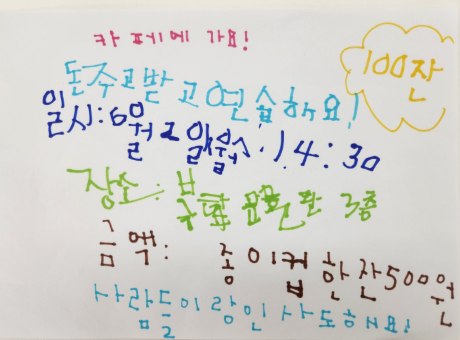 카페에 가요!
100잔
돈주고받고연습해요!
일시: 6월2일 4:30
장소: 3층
금액: 종이컵 한잔500원
사람들이랑인사도해요!